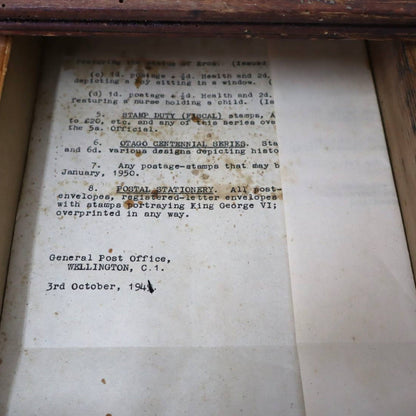 featuring the Statue of Eros. (Issued
(c) 1d. postage + ½d. Health and 2d.
depicting a boy sitting in a window. (
(d) 1d. postage + ½d. Health and 2d.
featuring a nurse holding a child. (Is
5. STAMP DUTY (FISCAL) stamps, A
to £20, etc. and any of this series ove
the 5s. Official.
6. OTAGO CENTENNIAL SERIES. Sta
and 6d. various designs depicting histo
7. Any postage-stamps that may b
January, 1950.
8. POSTAL STATIONERY. All post-
envelopes, registered-letter envelopes
with stamps portraying King George VI;
overprinted in any way.
General Post Office,
WELLINGTON, C.1.
3rd October, 194